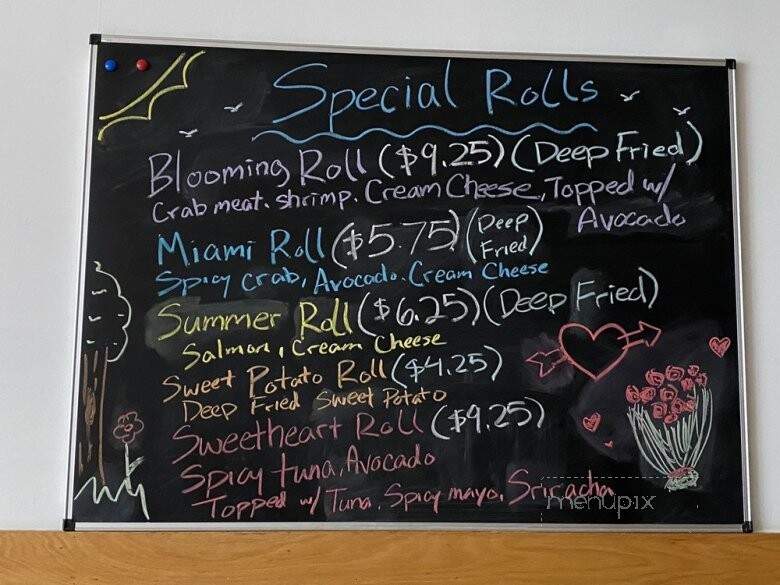 Special Rolls
Blooming Roll ($9.25) (Deep Fried)
Crab meat. shrimp. Cream Cheese, Topped w/
Avocado
Miami Roll ($5.75) (Deep
Fried)
Spicy crab, Avocado. Cream Cheese
Summer Roll ($6.25) (Deep Fried)
Salmon, Cream Cheese
Sweet Potato Roll ($4.25)
Deep Fried Sweet Potato
Sweetheart Roll ($9.25)
Spicy tuna, Avocado
Topped w/ Tuna, Spicy mayo, Sriracha
menupix